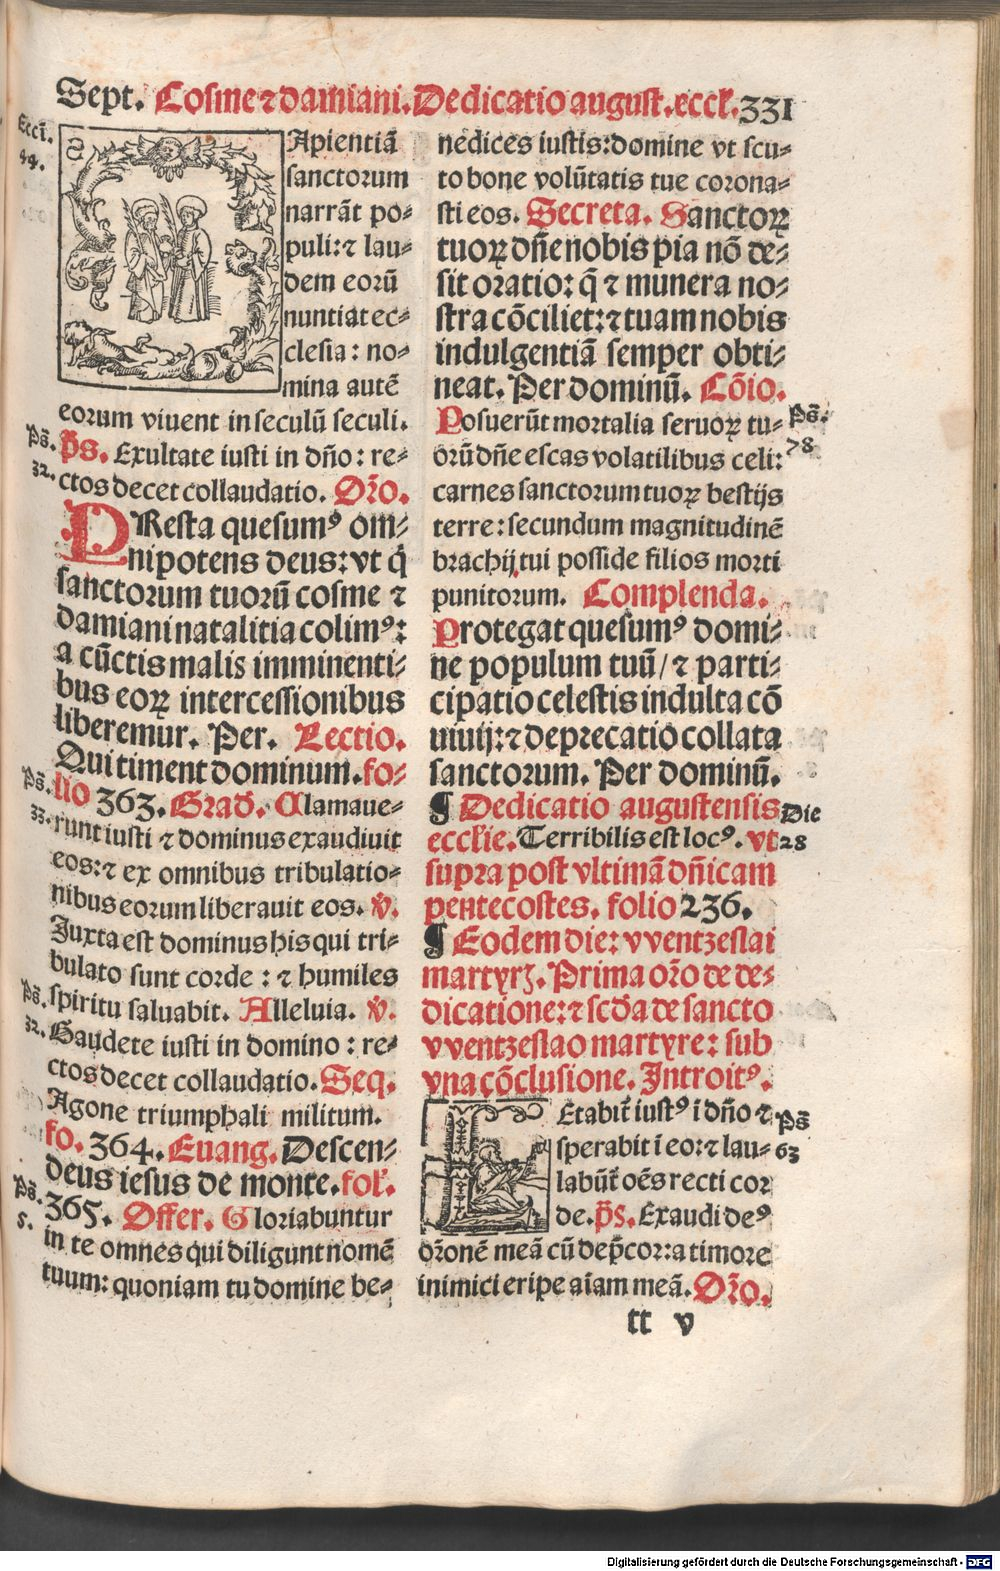 Sept. Cosme ⁊ damiani. Dedicatio august. eccl̃. 331
Eccl̃i.
44.
SApientiā
sanctorum
narrāt po⸗
puli: ⁊ lau⸗
dem eorū
nuntiat ec⸗
clesia: no⸗
mina autē
eorum viuent in seculū seculi.
Ps̄.
32.
p̄s. Exultate iusti in dn̄o: re⸗
ctos decet collaudatio. Or̄o.
PResta quesumꝰ om⸗
nipotens deus: vt q̄
sanctorum tuorū cosme ⁊
damiani natalitia colimꝰ:
a cūctis malis imminenti⸗
bus eoꝝ intercessionibus
liberemur. Per. Lectio.
Qui timent dominum. fo⸗
Ps̄.
33.
lio 363. Grad̄. Clamaue⸗
runt iusti ⁊ dominus exaudiuit
eos: ⁊ ex omnibus tribulatio⸗
nibus eorum liberauit eos. v̄.
Juxta est dominus his qui tri⸗
bulato sunt corde : ⁊ humiles
Ps̄.
32.
spiritu saluabit. Alleluia. v̄.
Gaudete iusti in domino : re⸗
ctos decet collaudatio. Seq.
Agone triumphali militum.
fo. 364. Euang. Descen⸗
deus iesus de monte. fol̃.
Ps̄.
5.
365. Offer. Gloriabuntur
in te omnes qui diligunt nomē
tuum: quoniam tu domine be⸗
nedices iustis: domine vt scu⸗
to bone volūtatis tue corona⸗
sti eos. Secreta. Sanctoꝝ
tuoꝝ dn̄e nobis pia nō de⸗
sit oratio: q̄ ⁊ munera no⸗
stra cōciliet: ⁊ tuam nobis
indulgentiā semper obti⸗
neat. Per dominū. Cōio.
Posuerūt mortalia seruoꝝ tu⸗
Ps̄.
78
orū dn̄e escas volatilibus celi:
carnes sanctorum tuoꝝ bestijs
terre: secundum magnitudinē
brachij tui posside filios morti
punitorum. Complenda.
Protegat quesumꝰ domi⸗
ne populum tuū/ ⁊ parti⸗
cipatio celestis indulta cō
uiuij: ⁊ deprecatio collata
sanctorum. Per dominū.
¶ Dedicatio augustensis
Die
28
eccl̃ie. Terribilis est locꝰ. vt
supra post vltimā dn̄icam
pentecostes. folio 236.
¶ Eodem die: vventzeslai
martyrꝫ. Prima or̄o de de⸗
dicatione: ⁊ scd̄a de sancto
vventzeslao martyre: sub
vna cōclusione. Introitꝰ.
LEtabit̄ iustꝰ i dn̄o ⁊
Ps̄
63
sperabit ī eo: ⁊ lau⸗
labūt̄ oēs recti cor
de. p̄s. Exaudi deꝰ
or̄onē meā cū dep̄cor: a timore
inimici eripe aīam meā. Or̄o.
tt v
Digitalisierung gefördert durch die Deutsche Forschungsgemeinschaft - DFG